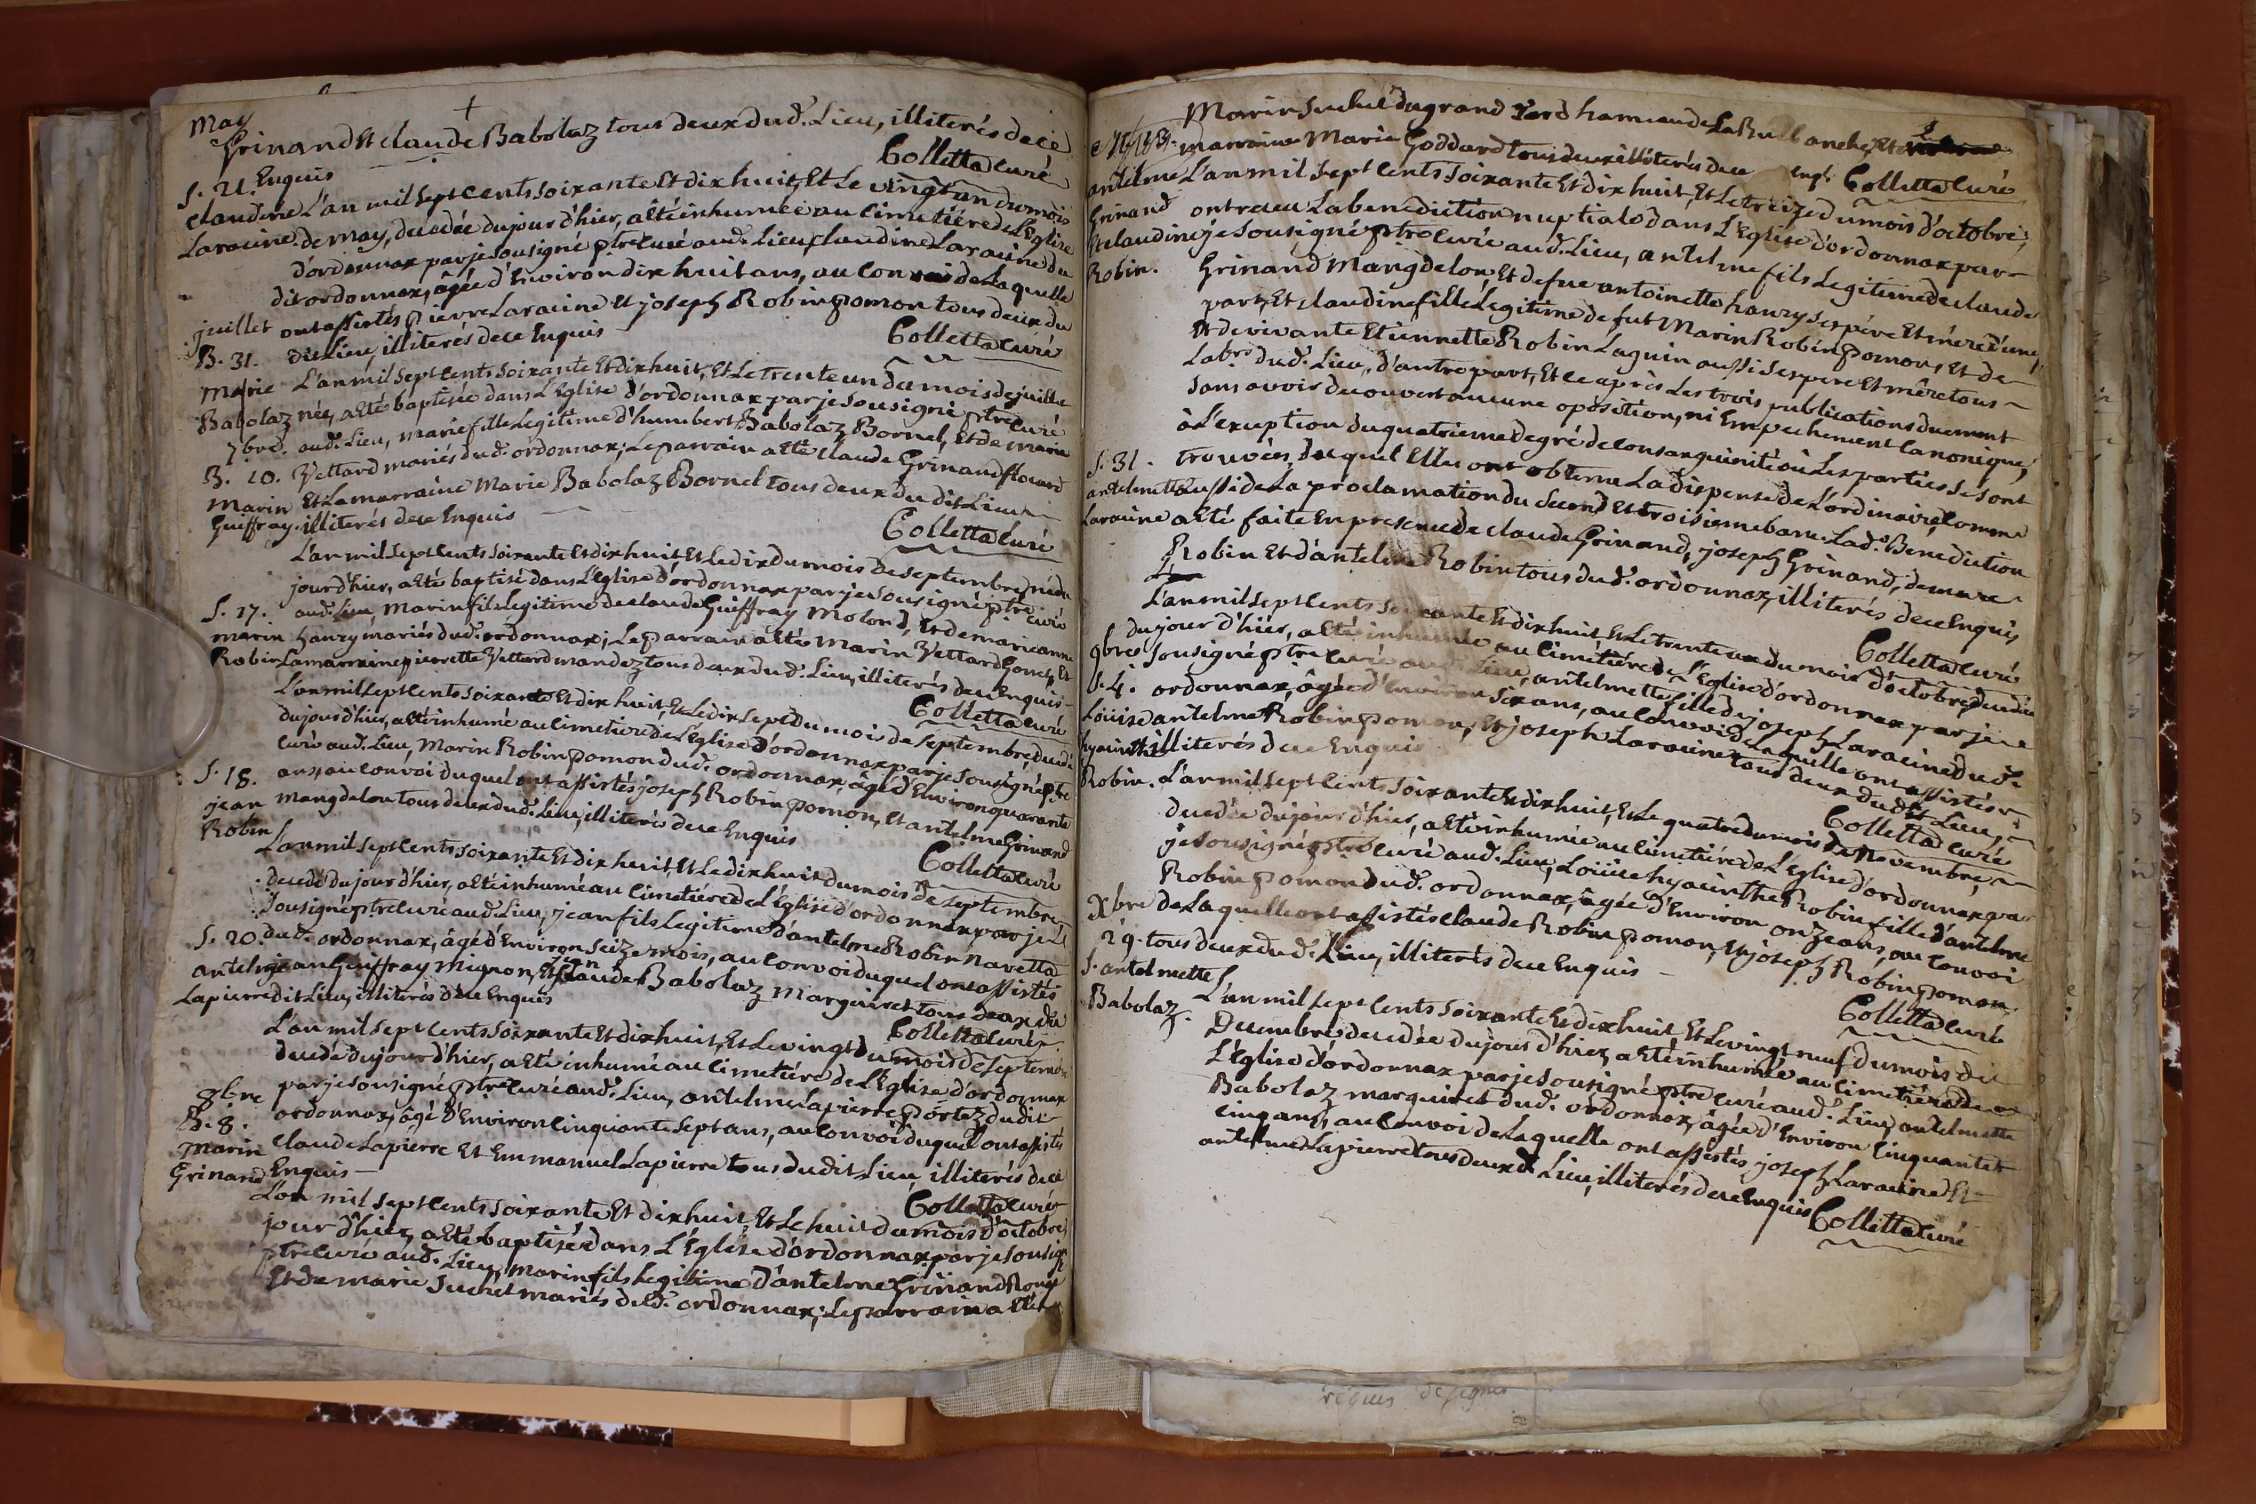 May
+
Grinand Et claude Babolaz tous deux dud.t Lieu, illiterés de ce
Enquis
Colletta curé
S. 21.
claudine
Laracine
L'an mil sept cents soixante Et dix huit, Et Le vingt un du mois
de may, decedée du jour d'hier, a été inhumée au cimetière de L'Eglise
d'ordonnax par je sousigné ptre curé aud.t Lieu, claudine Laracine du
dit ordonnax, âgée d'Environ dix huit ans, au convoi de Laquelle
ont assistés pierre Laracine Et joseph Robin pomon tous deux du
dit Lieu, illiterés de ce Enquis
Colletta curé
juillet
B. 31.
Marie
Babolaz
L'an mil sept cents soixante Et dix huit, Et Le trente un du mois de juillet
née, a été baptisée dans L'Eglise d'ordonnax par je sousigné ptre curé
aud.t Lieu, marie fille Legitime d'humbert Babolaz Bornel, Et de marie
Vettard mariés dud.t ordonnax; Le parrain a été claude Grinand flocard
Et La marraine Marie Babolaz Bornel tous deux du dit Lieu
illiterés de ce Enquis
Colletta curé
7bre.
B. 10.
Marin
Guiffray.
L'an mil sept cents soixante Et dix huit, Et Le dix du mois de septembre, né du
jour d'hier, a été baptisé dans L'Eglise d'ordonnax par je sousigné ptre curé
aud.t Lieu, Marin fils Legitime de claude Guiffray Molond, Et de marieanne
hanry mariés dud.t ordonnax; Le parrain a été Marin Vettard Gonet, Et
La marraine pierrette Vettard mandez tous deux dud.t Lieu, illiterés de ce Enquis
Colletta curé
S. 17.
marin
Robin
L'an mil sept cents soixante Et dix huit, Et Le dix sept du mois de septembre, decedé
du jour d'hier, a été inhumé au cimetière de L'Eglise d'ordonnax par je sousigné ptre
curé aud.t Lieu, Marin Robin pomon dud.t ordonnax, âgé d'Environ quarante
ans, au convoi duquel ont assistés joseph Robin pomon, Et antelme Grinand
Mangdelon tous deux dud.t Lieu, illiterés de ce Enquis
Colletta curé
S. 18.
jean
Robin
L'an mil sept cents soixante Et dix huit, Et Le dix huit du mois de septembre
decedé du jour d'hier, a été inhumé au cimetière de L'Eglise d'ordonnax par je
sousigné ptre curé aud.t Lieu, jean fils Legitime d'antelme Robin Navetta
dud.t ordonnax, âgé d'Environ seize mois, au convoi duquel ont assistés
jean Guiffray Mignon, Et claude Babolaz Marquiret tous deux du
dit Lieu, illiterés de ce Enquis
Colletta curé
S. 20.
antelme
Lapierre
L'an mil sept cents soixante Et dix huit, Et Le vingt du mois de septembre
decedé du jour d'hier, a été inhumé au cimetière de L'Eglise d'ordonnax
par je sousigné ptre curé aud.t Lieu, antelme Lapierre portaz du dit
ordonnax, âgé d'Environ cinquante sept ans, au convoi duquel ont assistés
claude Lapierre Et Emmanuel Lapierre tous du dit Lieu, illiterés de ce
Enquis
Colletta curé
8bre
B. 8.
Marin
Grinand
L'an mil sept cents soixante Et dix huit, Et Le huit du mois d'octobre
jour d'hier, a été baptisé dans L'Eglise d'ordonnax par je sousigné
ptre curé aud.t Lieu, Marin fils Legitime d'antelme Grinand Rouge
Et de marie Suchet mariés dud.t ordonnax; Le parrain a été
Marin Suchet du grand Nerd hameau de La Rublanche, Et
marraine Marie Goddard tous deux illiterés de ce enq.s Colletta curé
13.
antelme
Grinand
Et claudine
Robin.
L'an mil sept cents soixante Et dix huit, Et Le treize du mois d'octobre,
ont reçu La benediction nuptiale dans L'Eglise d'ordonnax par
je sousigné ptre curé aud.t Lieu, antelme fils Legitime de claude
Grinand Mangdelon, Et de fue antoinette hanry ses père Et mère d'une
part, Et claudine fille Legitime de fut Marin Robin pomon, Et de
Et de vivante Etiennette Robin Laguin aussi ses pere Et mère tous
Labrs dud.t Lieu, d'autre part, Et ce après Les trois publications duement
sans avoir decouvert aucune oposition, ni Empechement canonique,
à L'exception du quatrieme degré de consanguinité où Les parties se sont
trouvées, duquel Elles ont obtenu La dispense de L'ordinaire, comme
aussi de La proclamation du second Et troisieme banc. Lad.e Benediction
a été faite En presence de claude Grinand, joseph Grinand,
Robin Et d'antelme Robin tous dud.t ordonnax, illiterés de ce Enquis
Colletta curé
S. 31.
antelmette
Laracine
L'an mil sept cents soixante Et dix huit, Et Le trente un du mois d'octobre, decedée
du jour d'hier, a été inhumée au cimetière de L'Eglise d'ordonnax par je
sousigné ptre curé aud.t Lieu, antelmette fille de joseph Laracine dud.t
ordonnax, âgée d'Environ six ans, au convoi de Laquelle ont assistés
antelme Robin pomon, Et joseph Laracine tous deux dud.t Lieu,
illiterés de ce Enquis
Colletta curé
9bre
S. 4.
Loüise
hyacinthe
Robin.
L'an mil sept cents soixante Et dix huit, Et Le quatre du mois de Novembre,
decedée du jour d'hier, a été inhumée au cimetière de L'Eglise d'ordonnax par
je sousigné ptre curé aud.t Lieu, Loüise hyacinthe Robin fille d'antelme
Robin pomon dud.t ordonnax, âgée d'Environ onze ans, au convoi
de Laquelle ont assistés claude Robin pomon, Et joseph Robin pomon
tous deux dud.t Lieu, illiterés de ce Enquis
Colletta curé
Xbre
29.
S. antelmette
Babolaz
L'an mil sept cents soixante Et dix huit, Et Le vingt neuf du mois de
Decembre decedée du jour d'hier, a été inhumée au cimetière de
L'Eglise d'ordonnax par je sousigné ptre curé aud.t Lieu, antelmette
Babolaz marquiret dud.t ordonnax, âgée d'Environ cinquante
cinq ans, au convoi de Laquelle ont assistés joseph Laracine Et
antelme Lapierre tous deux du Lieu, illiterés de ce Enquis
Colletta curé